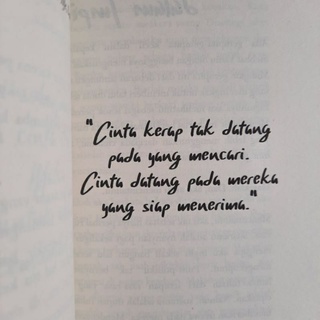 "Cinta kerap tak datang
pada yang mencari.
Cinta datang pada mereka
yang siap menerima."